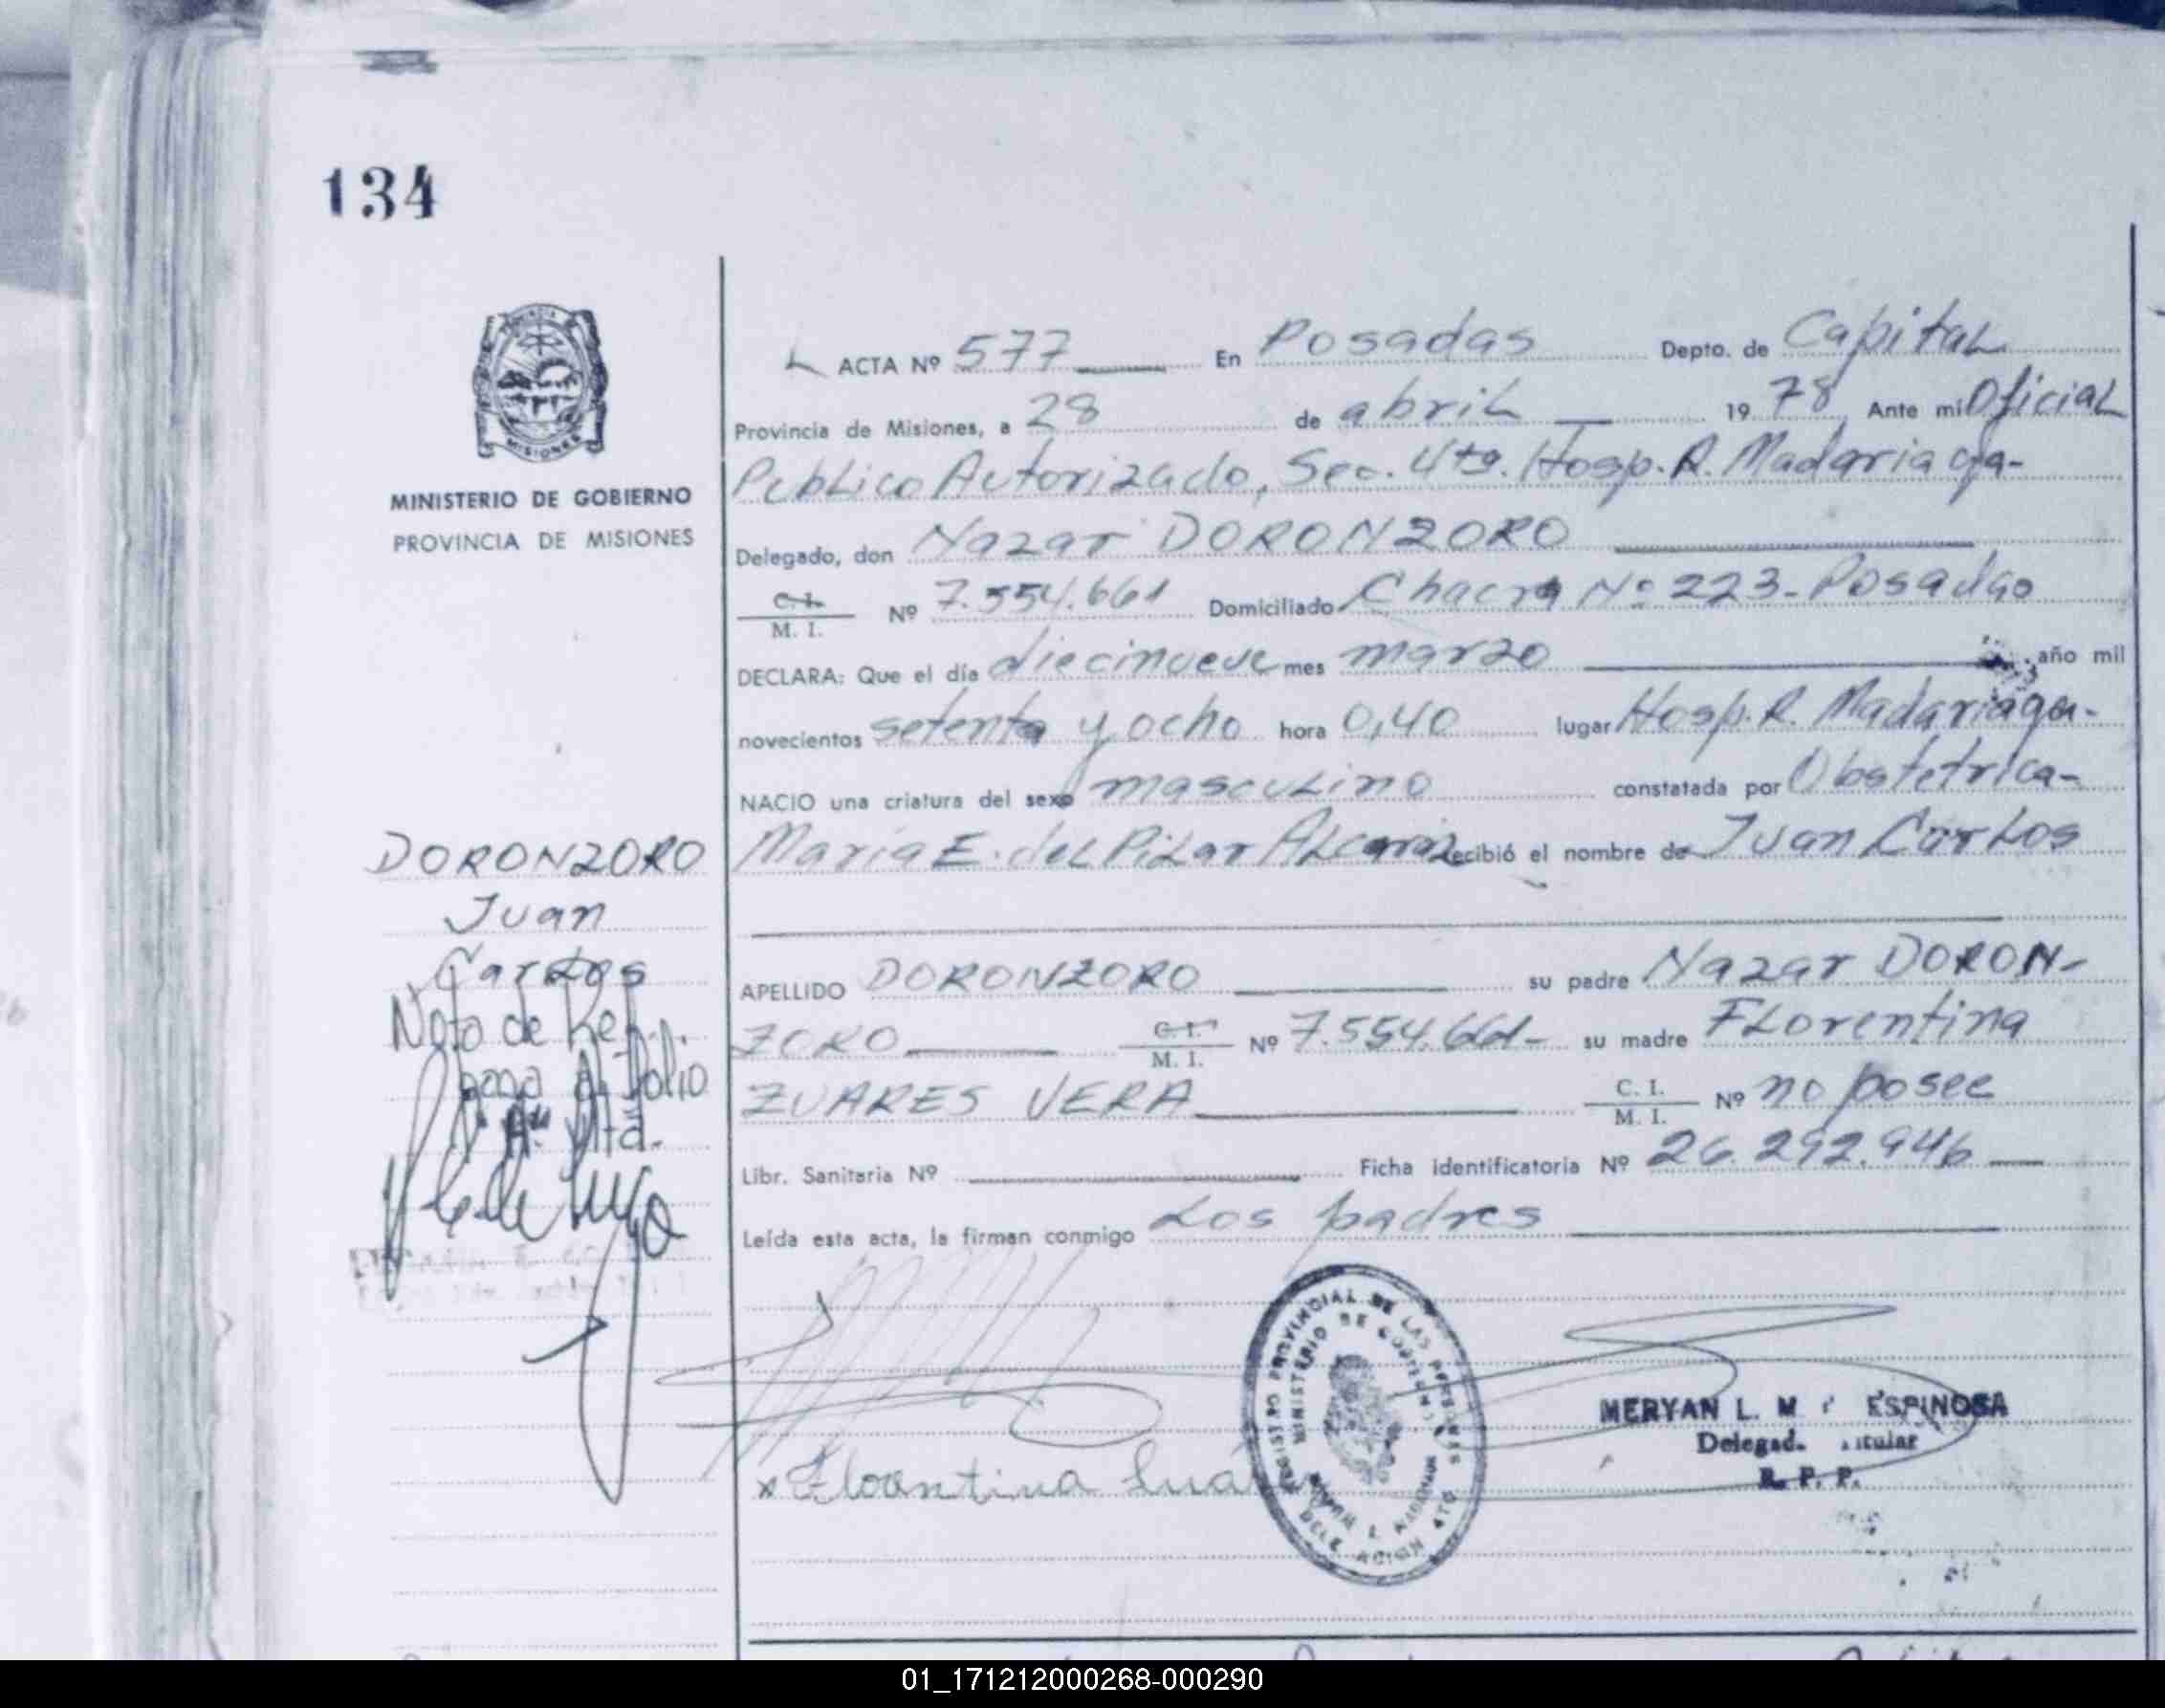 134
MISIONES
MINISTERIO DE GOBIERNO
PROVINCIA DE MISIONES
ACTA Nº 577 En Posadas Depto. de Capital
Provincia de Misiones, a 28 de abril 1978 Ante mi Oficial
Publico Autorizado, Sec. 4ta. Hosp. R. Madariaga-
Delegado, don Nazar DORONZORO
C. I. M. I. Nº 7.554.661 Domiciliado Chacra Nº 223-Posadas
DECLARA: Que el día diecinueve mes marzo año mil
novecientos setenta y ocho hora 0,40 lugar Hosp. R. Madariaga-
NACIO una criatura del sexo masculino constatada por Obstetrica-
María E. del Pilar Alcaraz recibió el nombre de Juan Carlos
APELLIDO DORONZORO su padre Nazar DORON-
ZORO C. I. M. I. Nº 7.554.661- su madre Florentina
ZUARES VERA C. I. M. I. Nº no posee
Libr. Sanitaria Nº Ficha identificatoria Nº 26.292.946
Leída esta acta, la firman conmigo Los padres
DORONZORO
Juan
Carlos
Nota de Ref.
pasa al folio
REGISTRO PROVINCIAL DE LAS PERSONAS
MINISTERIO DE GOBIERNO
MERYAN L. M ESPINOSA
Delegad.
R. P. P.
x Floantina Suá
01_171212000268-000290